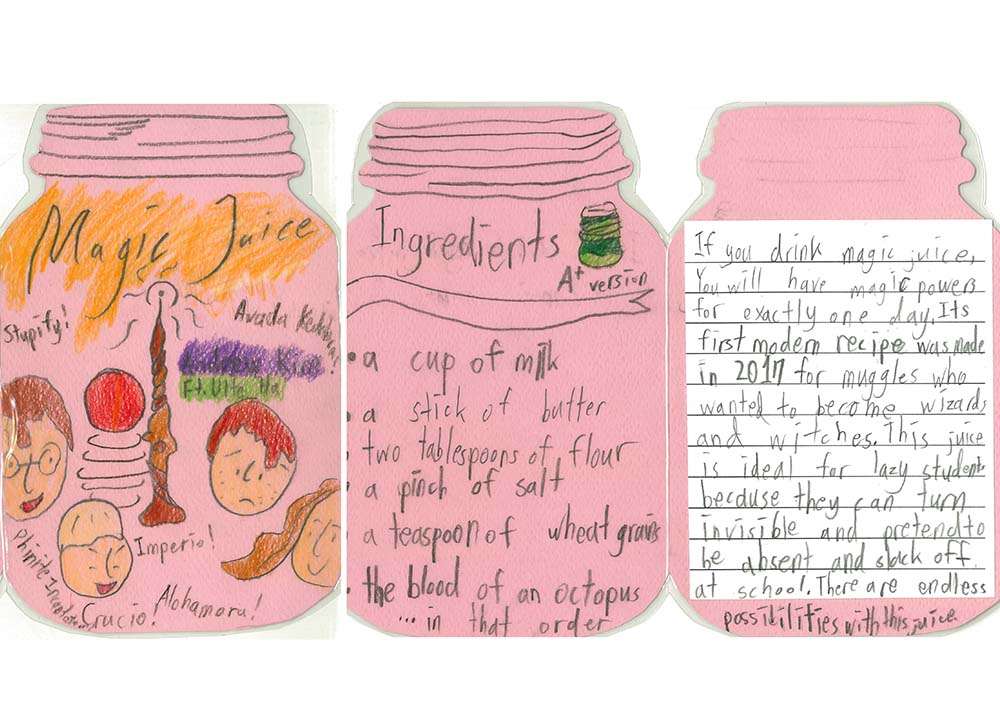 Magic Juice
Stupify!
Avada Kedabra!
Ft. Ulta Ha
Imperio!
Phinite
Crucio!
Alohamora!
Ingredients
A+ version
• a cup of milk
• a stick of butter
• two tablespoons of flour
• a pinch of salt
• a teaspoon of wheat grains
• the blood of an octopus
... in that order
If you drink magic juice,
You will have magic powers
for exactly one day. Its
first modern recipe was made
in 2017 for muggles who
wanted to become wizards
and witches. This juice
is ideal for lazy students
because they can turn
invisible and pretend to
be absent and slack off
at school. There are endless
possibilities with this juice.